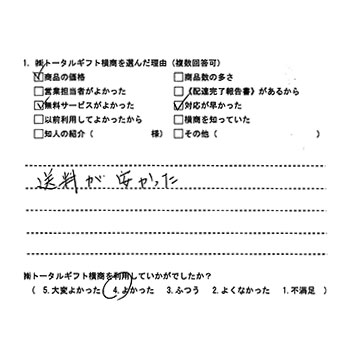 1. ㈱トータルギフト横商を選んだ理由（複数回答可）
☑商品の価格 □商品数の多さ
□営業担当者がよかった □《配達完了報告書》があるから
☑無料サービスがよかった ☑対応が早かった
□以前利用してよかったから □横商を知っていた
□知人の紹介（ 様） □その他（ ）
送料が安かった
㈱トータルギフト横商を利用していかがでしたか？
（ 5.大変よかった 4.よかった 3.ふつう 2.よくなかった 1.不満足 ）